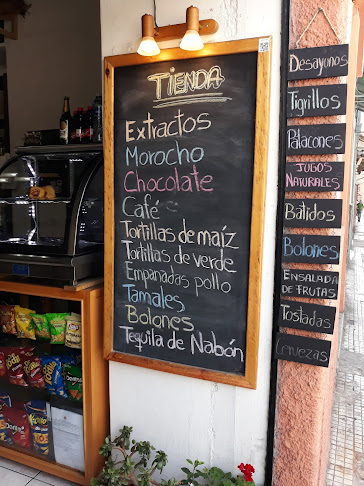 TIENDA
Extractos
Morocho
Chocolate
Café
Tortillas de maíz
Tortillas de verde
Empanadas pollo
Tamales
Bolones
Tequila de Nabón
Desayunos
Tigrillos
Patacones
JUGOS
NATURALES
Batidos
Bolones
ENSALADA
DE FRUTAS
Tostadas
Cervezas